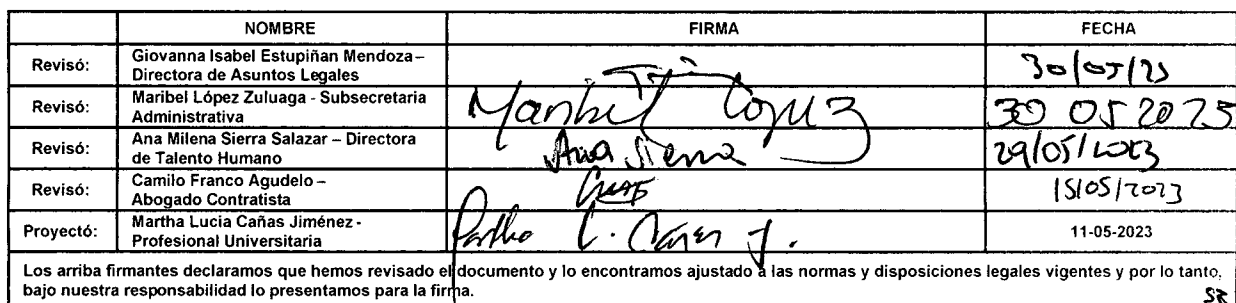 NOMBRE FIRMA FECHA
Revisó: Giovanna Isabel Estupiñan Mendoza – Directora de Asuntos Legales 30/05/23
Revisó: Maribel López Zuluaga - Subsecretaria Administrativa Maribel López Z 30 05 2023
Revisó: Ana Milena Sierra Salazar – Directora de Talento Humano Ana Sierra 29/05/2023
Revisó: Camilo Franco Agudelo – Abogado Contratista 15/05/2023
Proyectó: Martha Lucia Cañas Jiménez - Profesional Universitaria Martha L. Cañas J. 11-05-2023
Los arriba firmantes declaramos que hemos revisado el documento y lo encontramos ajustado a las normas y disposiciones legales vigentes y por lo tanto,
bajo nuestra responsabilidad lo presentamos para la firma.